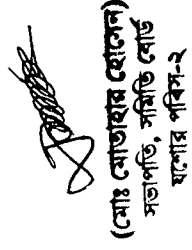 (মোঃ মোতাহার হোসেন)
সভাপতি, সমিতি বোর্ড
যশোর পবিস-২